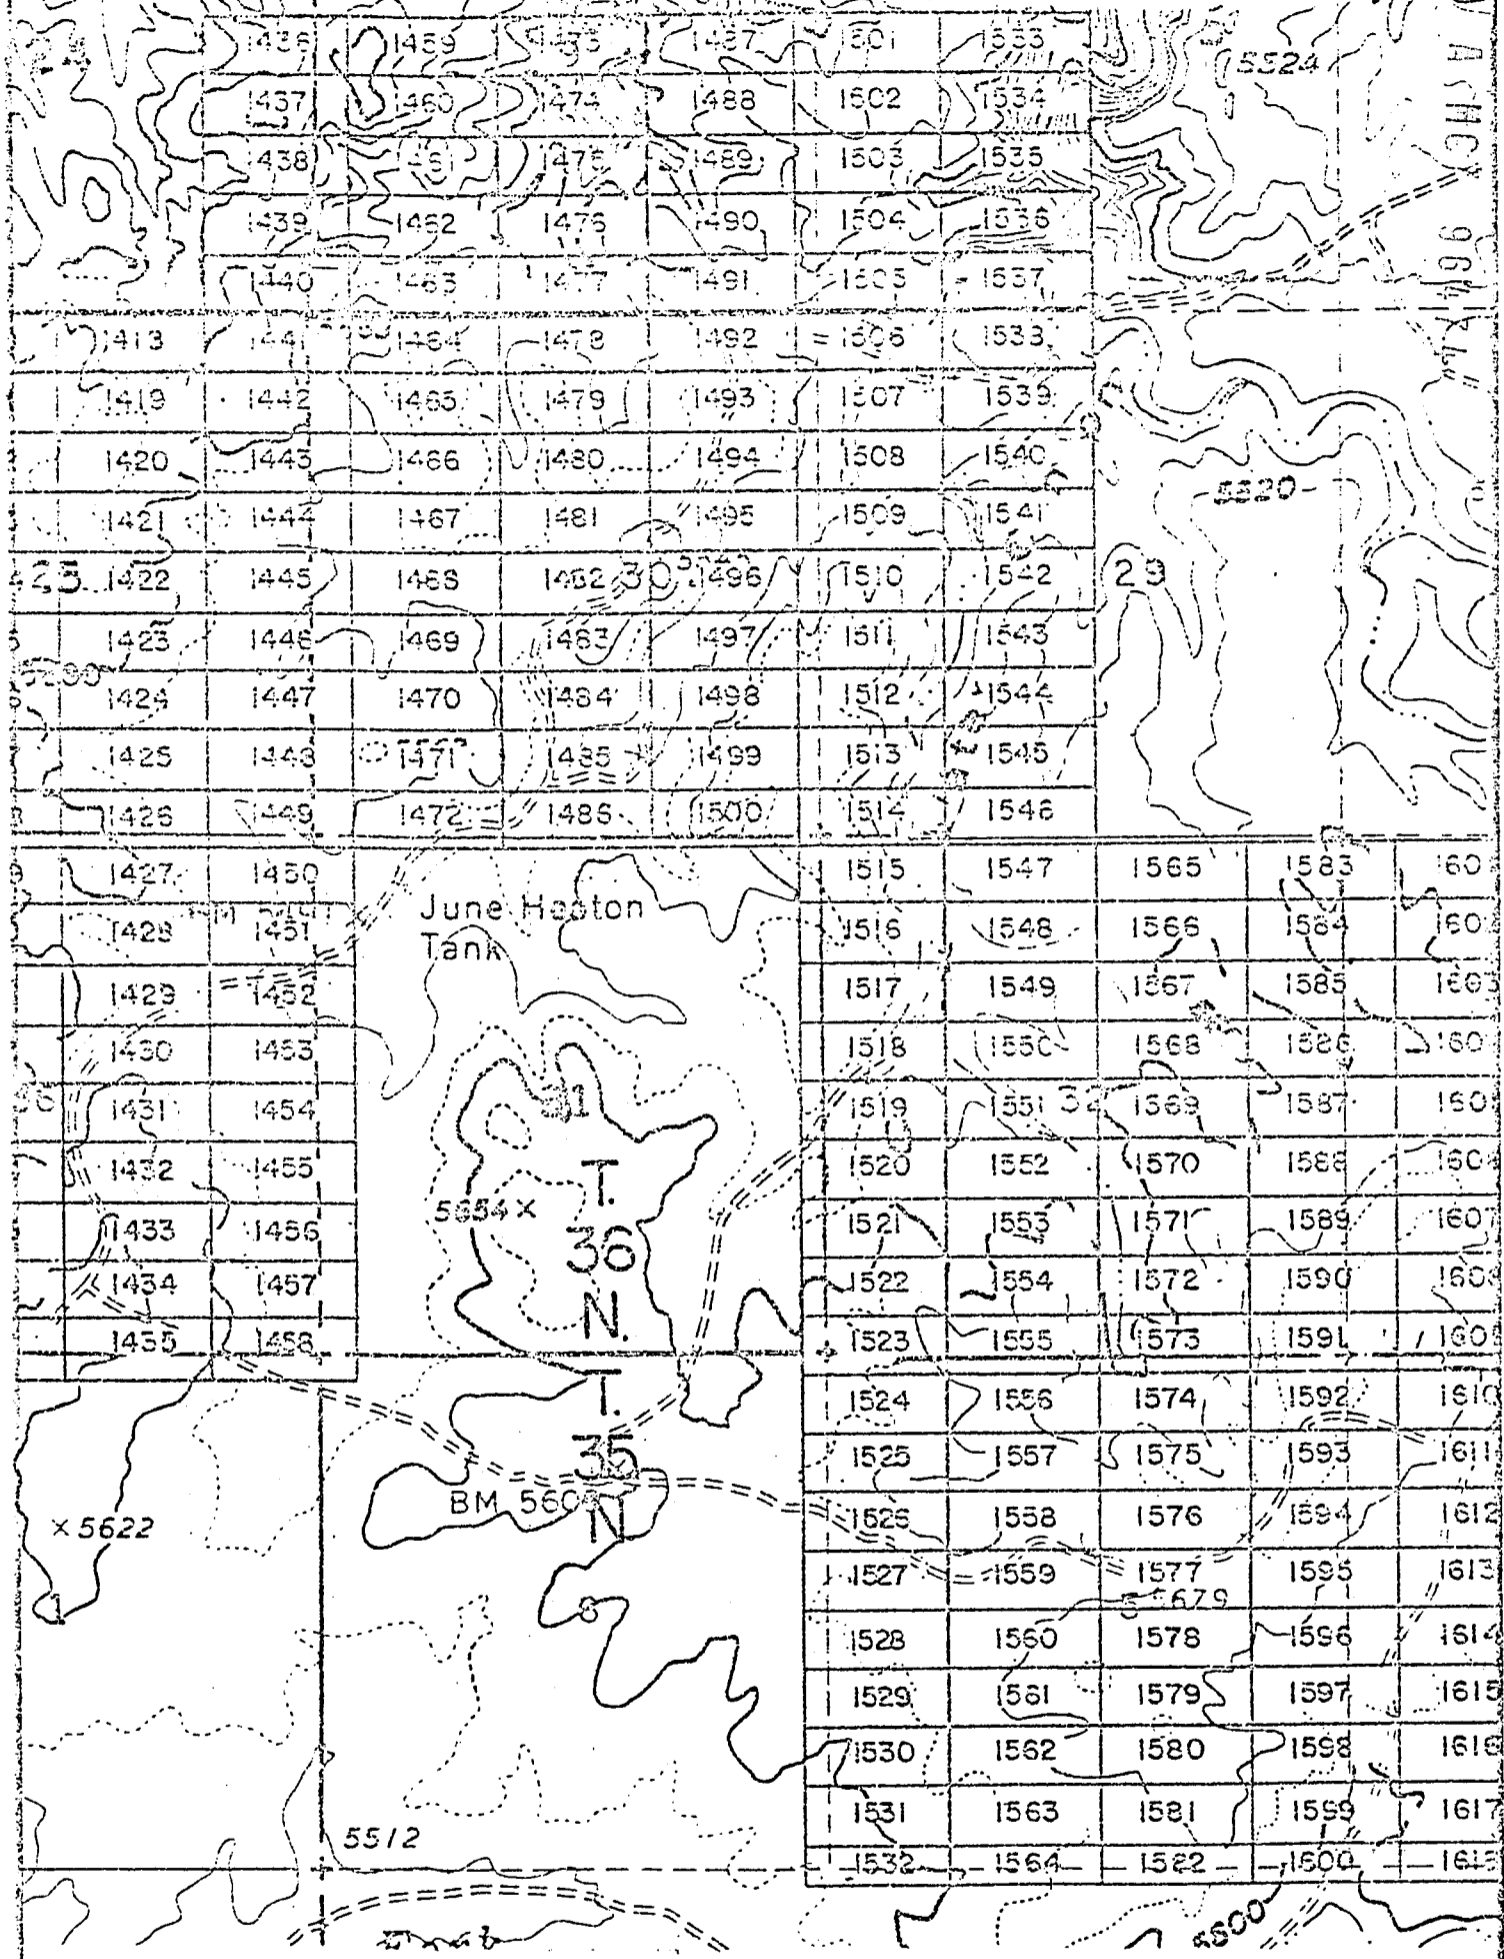 1436 1459 1473 1487 1501 1533 5524
1437 1460 1474 1488 1502 1534
1438 1461 1475 1489 1503 1535
1439 1462 1476 1490 1504 1536
1440 1463 1477 1491 1505 1537
1413 1441 1464 1478 1492 1506 1538
1419 1442 1465 1479 1493 1507 1539
1420 1443 1466 1480 1494 1508 1540
5520
1421 1444 1467 1481 1495 1509 1541
25 1422 1445 1468 1482 30 1496 1510 1542 29
1423 1446 1469 1483 1497 1511 1543
1424 1447 1470 1484 1498 1512 1544
1425 1448 1471 1485 1499 1513 1545
1426 1449 1472 1486 1500 1514 1546
1427 1450 1515 1547 1565 1583 160
June Heaton
Tank
1428 1451 1516 1548 1566 1584 160
1429 1452 1517 1549 1567 1585 1603
1430 1453 1518 1550 1568 1586 160
31
1431 1454 1519 1551 32 1569 1587 160
1432 1455 1520 1552 1570 1588 160
5654 ×
T.
36
N.
1433 1456 1521 1553 1571 1589 1607
1434 1457 1522 1554 1572 1590 1608
1435 1458 1523 1555 1573 1591 1609
T.
35
N
1524 1556 1574 1592 1610
1525 1557 1575 1593 1611
BM 560
× 5622
1526 1558 1576 1594 1612
1527 1559 1577 1595 1613
1 6 5 5679
1528 1560 1578 1596 1614
1529 1561 1579 1597 1615
1530 1562 1580 1598 1616
1531 1563 1581 1599 1617
5512
1532 1564 1582 1600 1618
5500